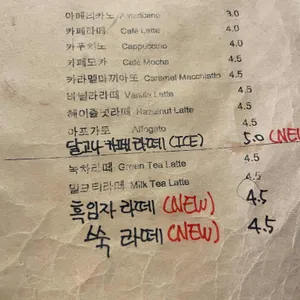 아메리카노 Americano 3.0
카페라떼 Café Latte 4.0
카푸치노 Cappuccino 4.0
카페모카 Cafe Mocha 4.5
카라멜마끼아또 Caramel Macchiatto 4.5
바닐라라떼 Vanilla Latte 4.5
헤이즐넛라떼 Hazulnut Latte 4.5
아프가토 Affogato 4.5
달고나 카페라떼 (ICE) 5.0 (NEW
녹차라떼 Green Tea Latte 4.5
밀크티라떼 Milk Tea Latte 4.5
흑임자 라떼 (NEW) 4.5
쑥 라떼 (NEW) 4.5